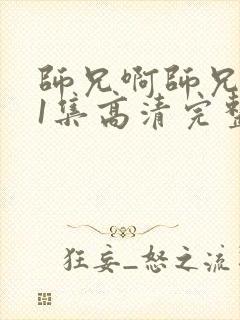 師兄啊師兄
1集高清完整
狂妄_怒之流